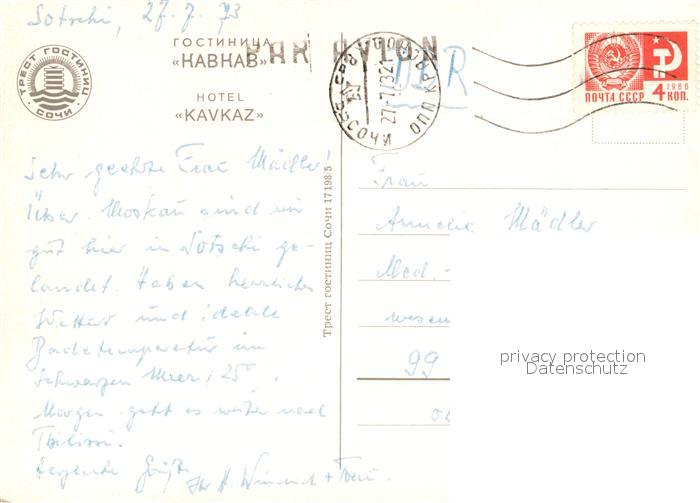 Sotschi, 27.7.73
ТРЕСТ ГОСТИНИЦ
СОЧИ
ГОСТИНИЦА
«КАВКАЗ»
HOTEL
«KAVKAZ»
PAR AVION
DDR
СОЧИ
27-7-73 21
ПОЧТА СССР
1966
4 КОП.
Sehr geehrte Frau Mädler!
Über Moskau sind wir
gut hier in Sotschi ge-
landet. Haben herrliches
Wetter und ideale
Badetemperatur im
Schwarzen Meer, 25°.
Morgen geht es weiter nach
Tbilissi.
Herzliche Grüße
Ihr H.
Трест гостиниц Сочи 17198/5
Frau
Annelie Mädler
Med.-
wesen
99
privacy protection
Datenschutz